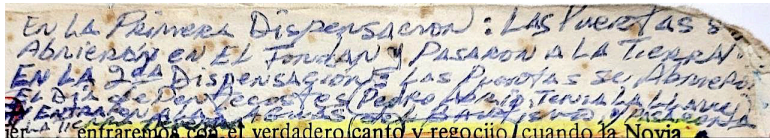 EN LA PRIMERA DISPENSACION: LAS PUERTAS S
ABRIERON EN EL JORDAN Y PASARON A LA TIERRA
EN LA 2da DISPENSACION: LAS PUERTAS SE ABRIERO
EL DIA de Pentecostes (Pedro abrio, Tenia LA LLave)
Y ENTRARON
entraremos con el verdadero canto y regocijo cuando la Novia